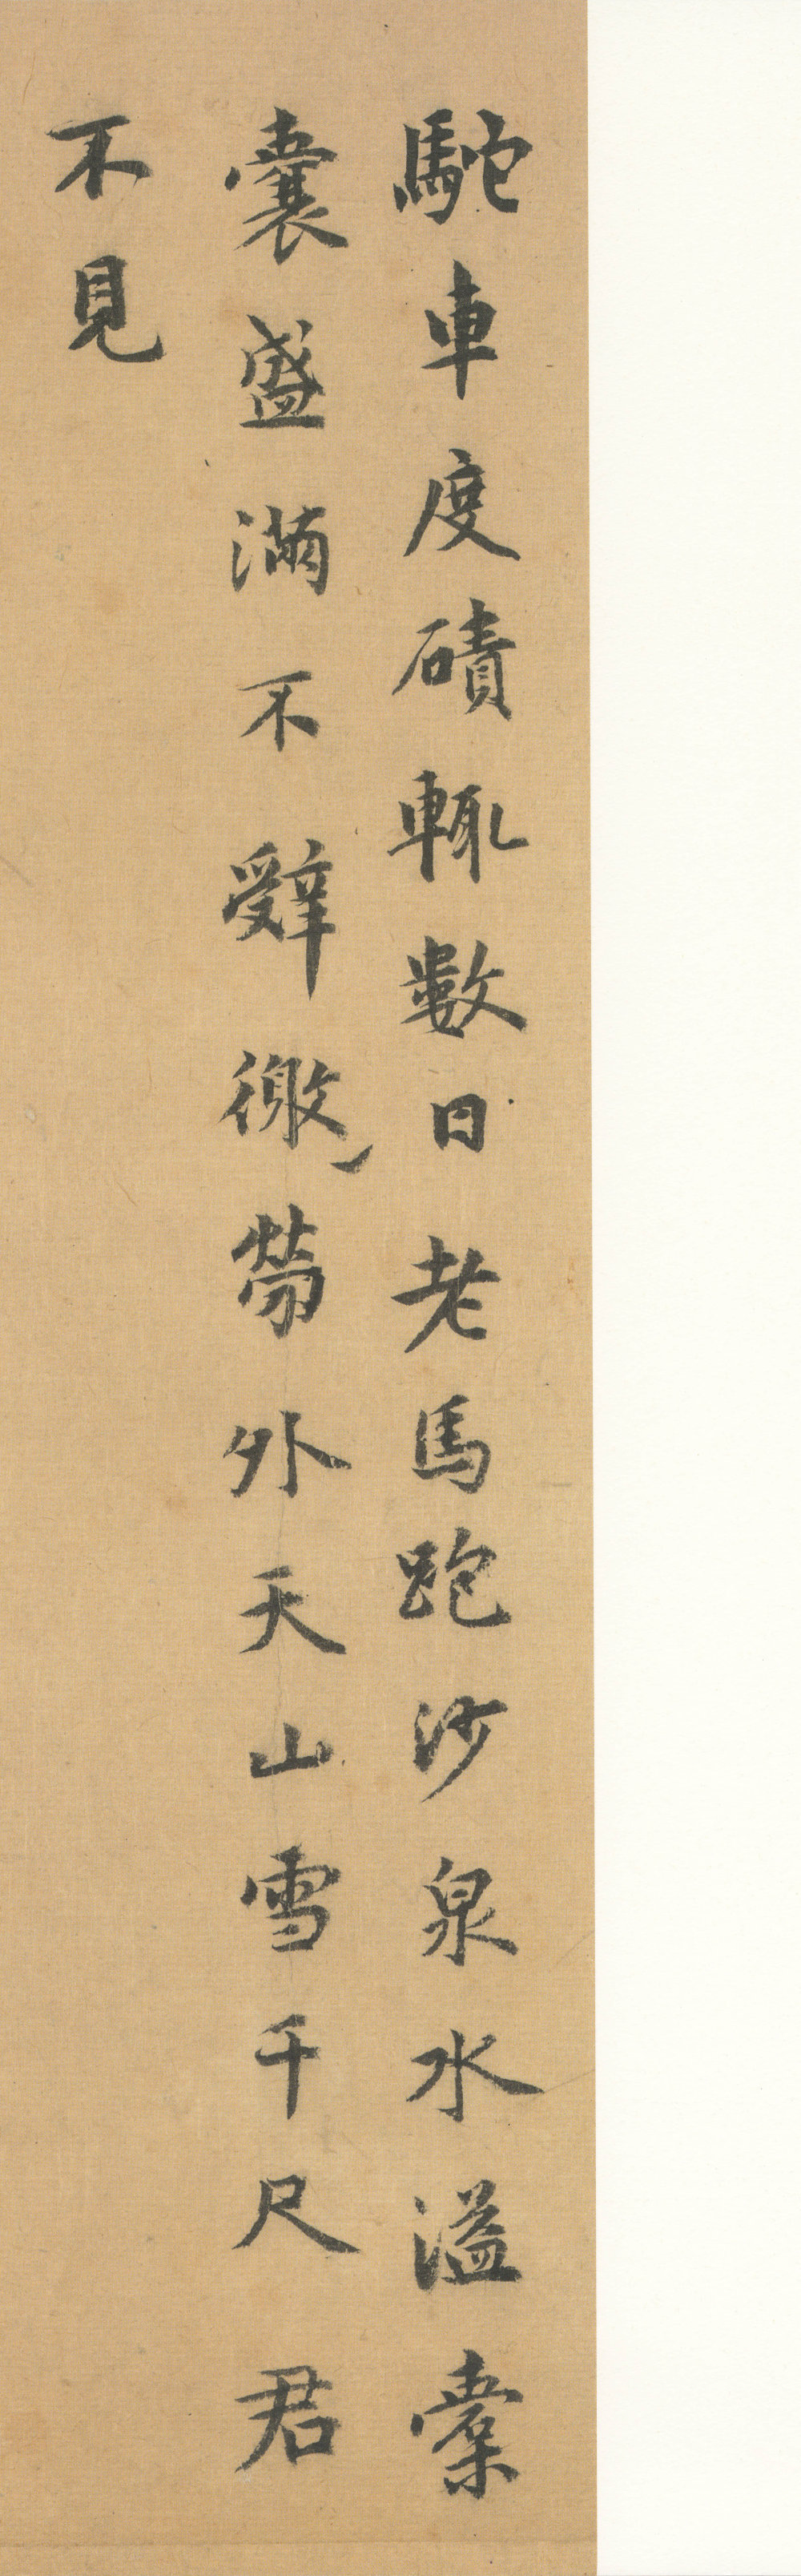 駝車度磧輒數日老馬跑沙泉水溢橐
囊盛滿不辭徼勞外天山雪千尺君
不見